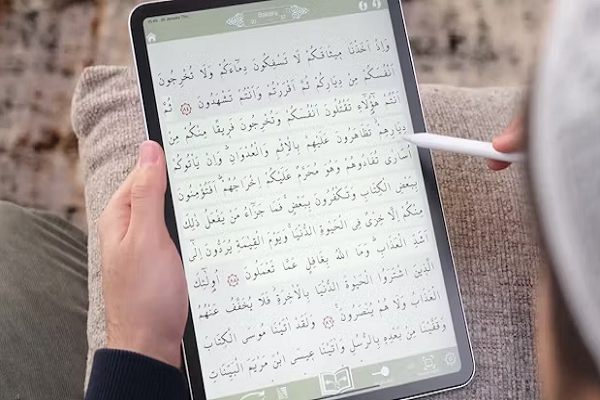 Bakara
وَاِذْ اَخَذْنَا مٖيثَاقَكُمْ لَا تَسْفِكُونَ دِمَٓاءَكُمْ وَلَا تُخْرِجُونَ
اَنْفُسَكُمْ مِنْ دِيَارِكُمْ ثُمَّ اَقْرَرْتُمْ وَاَنْتُمْ تَشْهَدُونَ ﴿٨٤﴾ ثُمَّ
اَنْتُمْ هٰٓؤُلَٓاءِ تَقْتُلُونَ اَنْفُسَكُمْ وَتُخْرِجُونَ فَرٖيقًا مِنْكُمْ مِنْ
دِيَارِهِمْ تَظَاهَرُونَ عَلَيْهِمْ بِالْاِثْمِ وَالْعُدْوَانِ وَاِنْ يَأْتُوكُمْ
اُسَارٰى تُفَادُوهُمْ وَهُوَ مُحَرَّمٌ عَلَيْكُمْ اِخْرَاجُهُمْ اَفَتُؤْمِنُونَ
بِبَعْضِ الْكِتَابِ وَتَكْفُرُونَ بِبَعْضٍ فَمَا جَزَٓاءُ مَنْ يَفْعَلُ ذٰلِكَ
مِنْكُمْ اِلَّا خِزْىٌ فِى الْحَيٰوةِ الدُّنْيَا وَيَوْمَ الْقِيٰمَةِ يُرَدُّونَ اِلٰٓى
اَشَدِّ الْعَذَابِ وَمَا اللّٰهُ بِغَافِلٍ عَمَّا تَعْمَلُونَ ﴿٨٥﴾ اُولٰٓئِكَ
الَّذٖينَ اشْتَرَوُا الْحَيٰوةَ الدُّنْيَا بِالْاٰخِرَةِ فَلَا يُخَفَّفُ عَنْهُمُ
الْعَذَابُ وَلَا هُمْ يُنْصَرُونَ ﴿٨٦﴾ وَلَقَدْ اٰتَيْنَا مُوسَى الْكِتَابَ
وَقَفَّيْنَا مِنْ بَعْدِهٖ بِالرُّسُلِ وَاٰتَيْنَا عٖيسَى ابْنَ مَرْيَمَ الْبَيِّنَاتِ